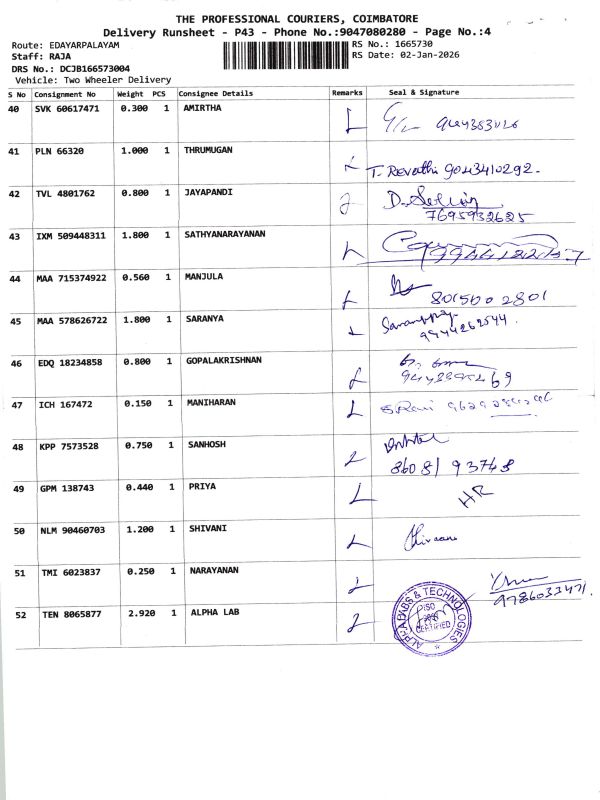 THE PROFESSIONAL COURIERS, COIMBATORE
Delivery Runsheet - P43 - Phone No.:9047080280 - Page No.:4
Route: EDAYARPALAYAM
RS No.: 1665730
Staff: RAJA
RS Date: 02-Jan-2026
DRS No.: DCJB166573004
Vehicle: Two Wheeler Delivery
S No Consignment No Weight PCS Consignee Details Remarks Seal & Signature
40 SVK 60617471 0.300 1 AMIRTHA
41 PLN 66320 1.000 1 THRUMUGAN
T. Revathi 9043410292.
42 TVL 4801762 0.800 1 JAYAPANDI
7695932625
43 IXM 509448311 1.800 1 SATHYANARAYANAN
44 MAA 715374922 0.560 1 MANJULA
8015602801
45 MAA 578626722 1.800 1 SARANYA
9944262544.
46 EDQ 18234858 0.800 1 GOPALAKRISHNAN
47 ICH 167472 0.150 1 MANIHARAN
S.Ravi
48 KPP 7573528 0.750 1 SANHOSH
8608193748
49 GPM 138743 0.440 1 PRIYA
HR
50 NLM 90460703 1.200 1 SHIVANI
51 TMI 6023837 0.250 1 NARAYANAN
9786033471.
52 TEN 8065877 2.920 1 ALPHA LAB
LABS & TECHNOLOGIES
ISO
CERTIFIED